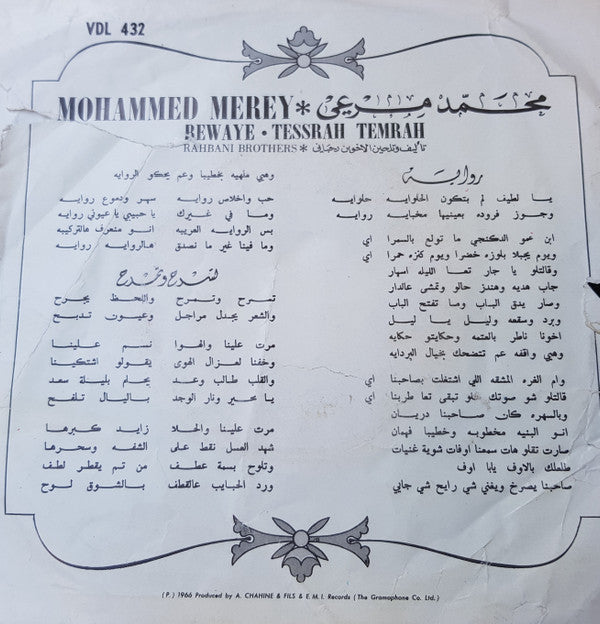 VDL 432
MOHAMMED MEREY * محمّد مرعي
REWAYE • TESSRAH TEMRAH
RAHBANI BROTHERS * تأليف وتلحين الاخوين رحباني
روايـة
يـا لطيف لم بتكون الحلوايـه حلوايـه
وجـوز فروده بعينيها مخبايـه روايـه
ابن عمو الدكنجي ما تولع بالسمرا اي
ويوم يجبلا بلوزه خضرا ويوم كنزه حمرا اي
وقالتلو يا جار تعا الليله اسهار
جاب هديه وهندز حالو وتمشى عالدار
وصار يدق الباب ومـا تفتح الباب
وبرد وسقعه وليـل يـا ليـل
اخونا ناطر بالعتمه وحكايتو حكايه
وهيي واقفه عم تتضحك بخيال البردايه
وام الغره المشقه اللي اشتغلت بصاحبنا اي
قالتلو شو صوتك حلو تبقى تعا طربنا اي
وبالسهره كان صـاحبنا دريـان
انـو البنيـه مخطوبـه وخطيبا فهمان
صارت تقلو هات سمعنا اوفات شوية غنيات
طلعلك بالاوف يابا اوف
صاحبنا يصرخ ويغني شي رايح شي جايي
وهيي ملهيه بخطيبا وعم يحكو الروايه
حب واخلاص روايـه سهـر ودموع روايـه
ومـا في غيـرك يا حبيبي يا عيوني روايه
بس الروايه الغريبه انـو منعرف هالتركيبه
وما فينا غير ما نصدق هالروايـه روايـه
تسرح وتمرح
تمـرح وتـمـرح واللحـظ يجـرح
والشعر يجدل مراجل وعيـون تدبـح
مرت علينا والهـوا نسـم علينـا
وخفنا لغـزال الهوى يقولـو اشتكينـا
والقلب طالب وعـد يحلـم بليـلة سعـد
يا حبر ونار الوجد باليال تلفـح
مرت علينـا والحلا زايـد كبرهـا
شهد العسل نقط على الشفه وسحرهـا
وتلوح بسمة عطـف من تـم يقطـر لطف
ورد الحبايب عالقطف بـالشوق لـوح
(P.) 1966 Produced by A. CHAHINE & FILS & E.M.I. Records (The Gramophone Co. Ltd.)